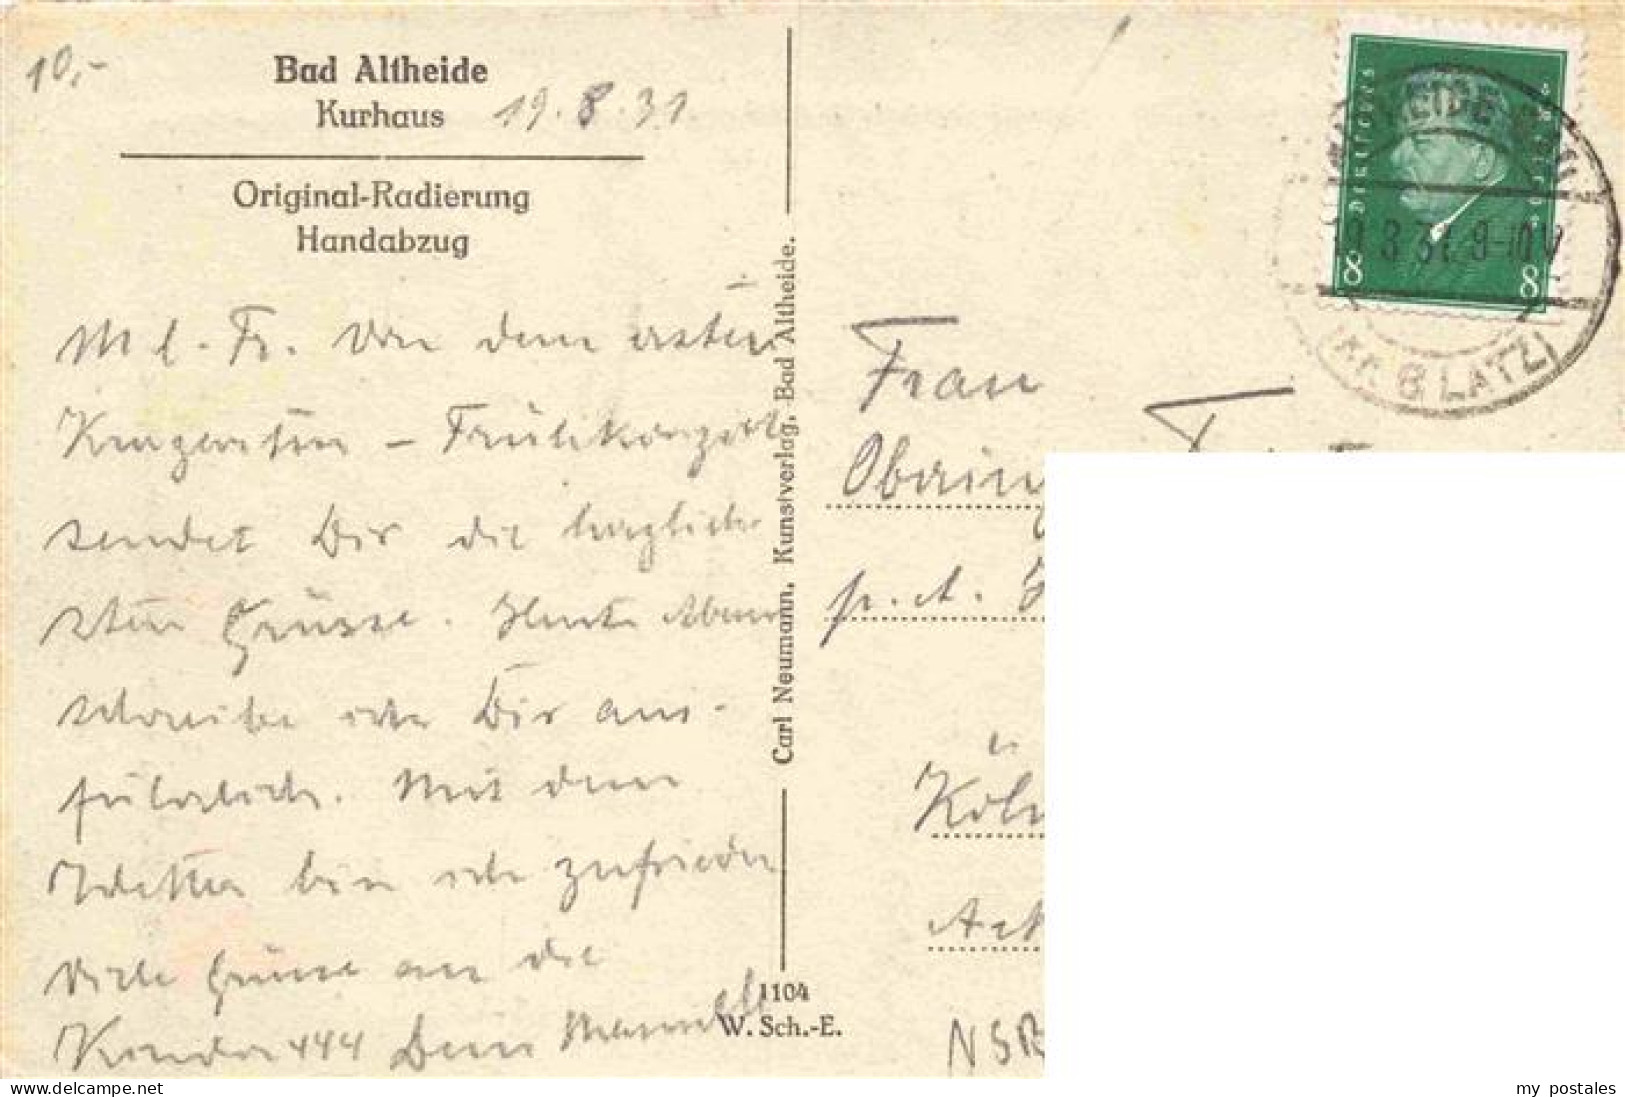 10,-
Bad Altheide
Kurhaus 19.8.31
Original-Radierung
Handabzug
M l. Fr. Von dem ersten
Kurgarten - Frühkonzert
sendet Dir die herzlich-
sten Grüsse. Heute Abend
schreibe ich Dir aus-
führlich. Mit dem
Wetter bin ich zufrieden
Viele Grüsse an die
Kinder Dein
Carl Neumann, Kunstverlag, Bad Altheide.
1104
W. Sch.-E.
DEUTSCHES REICH
8 8
HEIDE
8.31. 9-10 V
(KR. GLATZ)
Frau
Obering
p. A.
Köln
NSR
my postales